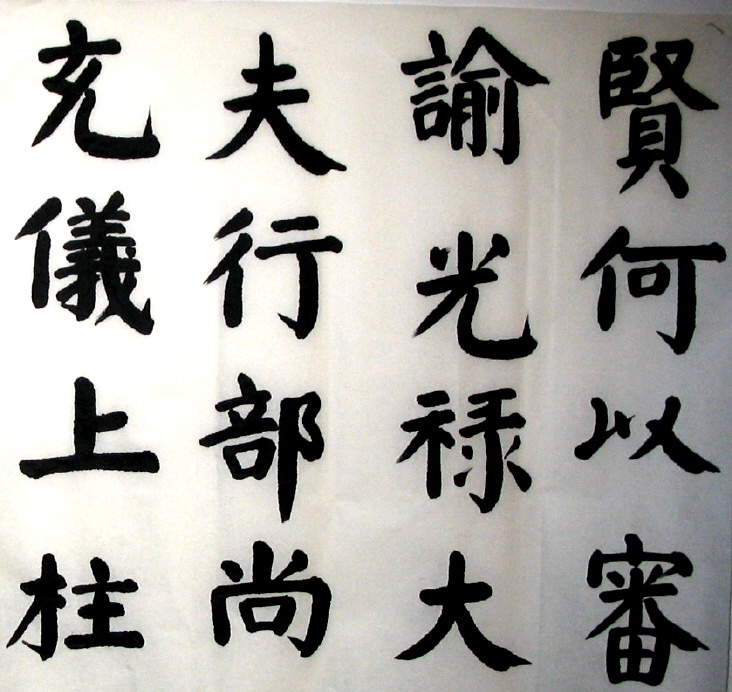 賢何以審
諭光禄大
夫行部尚
充儀上柱